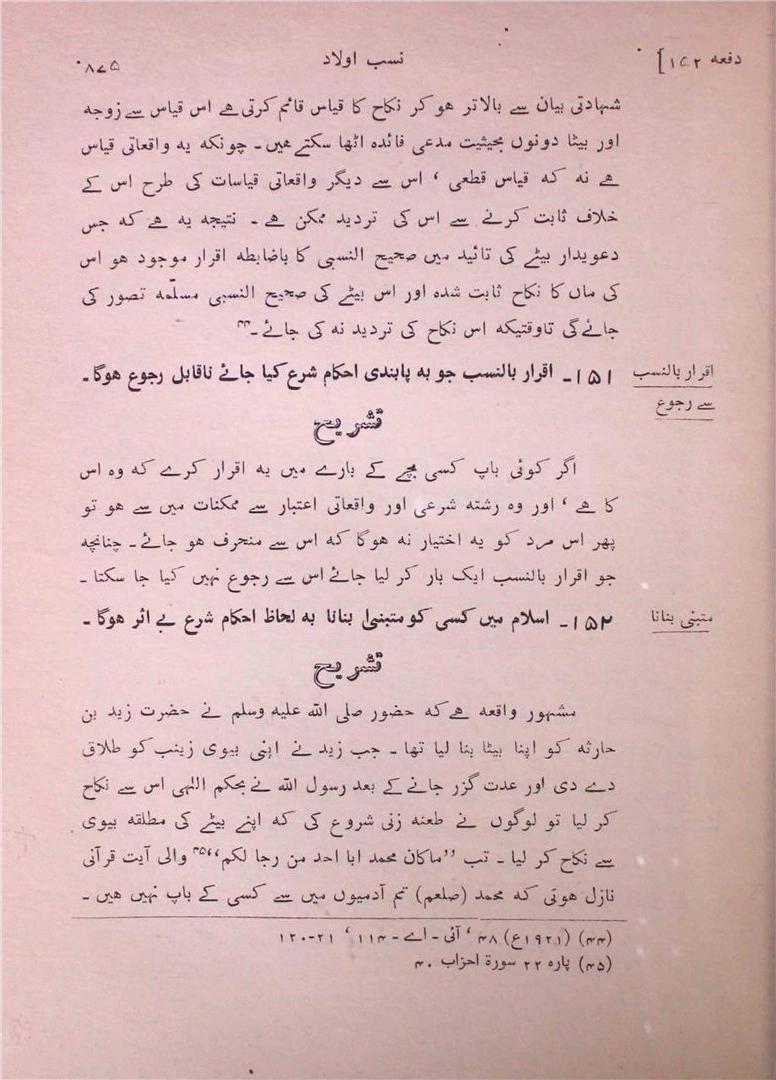 دفعہ ۱۵۲] نسب اولاد ۸۷۵
شہادتی بیان سے بالاتر ہو کر نکاح کا قیاس قائم کرتی ہے اس قیاس سے زوجہ
اور بیٹا دونوں بحیثیت مدعی فائدہ اٹھا سکتے ہیں ۔ چونکہ یہ واقعاتی قیاس
ہے نہ کہ قیاس قطعی ، اس سے دیگر واقعاتی قیاسات کی طرح اس کے
خلاف ثابت کرنے سے اس کی تردید ممکن ہے ۔ نتیجہ یہ ہے کہ جس
دعویدار بیٹے کی تائید میں صحیح النسبی کا باضابطہ اقرار موجود ہو اس
کی ماں کا نکاح ثابت شدہ اور اس بیٹے کی صحیح النسبی مسلّمہ تصور کی
جائے گی تاوقتیکہ اس نکاح کی تردید نہ کی جائے ۔۴۴
اقرار بالنسب
سے رجوع
۱۵۱ ۔ اقرار بالنسب جو بہ پابندی احکام شرع کیا جائے ناقابل رجوع ہوگا ۔
تشریح
اگر کوئی باپ کسی بچے کے بارے میں یہ اقرار کرے کہ وہ اس
کا ہے ، اور وہ رشتہ شرعی اور واقعاتی اعتبار سے ممکنات میں سے ہو تو
پھر اس مرد کو یہ اختیار نہ ہوگا کہ اس سے منحرف ہو جائے ۔ چنانچہ
جو اقرار بالنسب ایک بار کر لیا جائے اس سے رجوع نہیں کیا جا سکتا ۔
متبنی بنانا
۱۵۲ ۔ اسلام میں کسی کو متبنیٰ بنانا بہ لحاظ احکام شرع بے اثر ہوگا ۔
تشریح
مشہور واقعہ ہے کہ حضور صلی اللہ علیہ وسلم نے حضرت زید بن
حارثہ کو اپنا بیٹا بنا لیا تھا ۔ جب زید نے اپنی بیوی زینب کو طلاق
دے دی اور عدت گزر جانے کے بعد رسول اللہ نے بحکم الٰہی اس سے نکاح
کر لیا تو لوگوں نے طعنہ زنی شروع کی کہ اپنے بیٹے کی مطلقہ بیوی
سے نکاح کر لیا ۔ تب ’’ماکان محمد ابا احد من رجا لکم‘‘۴۵ والی آیت قرآنی
نازل ہوئی کہ محمد (صلعم) تم آدمیوں میں سے کسی کے باپ نہیں ہیں ۔
(۴۴) (۱۹۲۱ع) ۴۸ ، آئی ۔ اے ۔ ۱۱۴ ، ۲۱-۱۲۰
(۴۵) پارہ ۲۲ سورۃ احزاب ۴۰